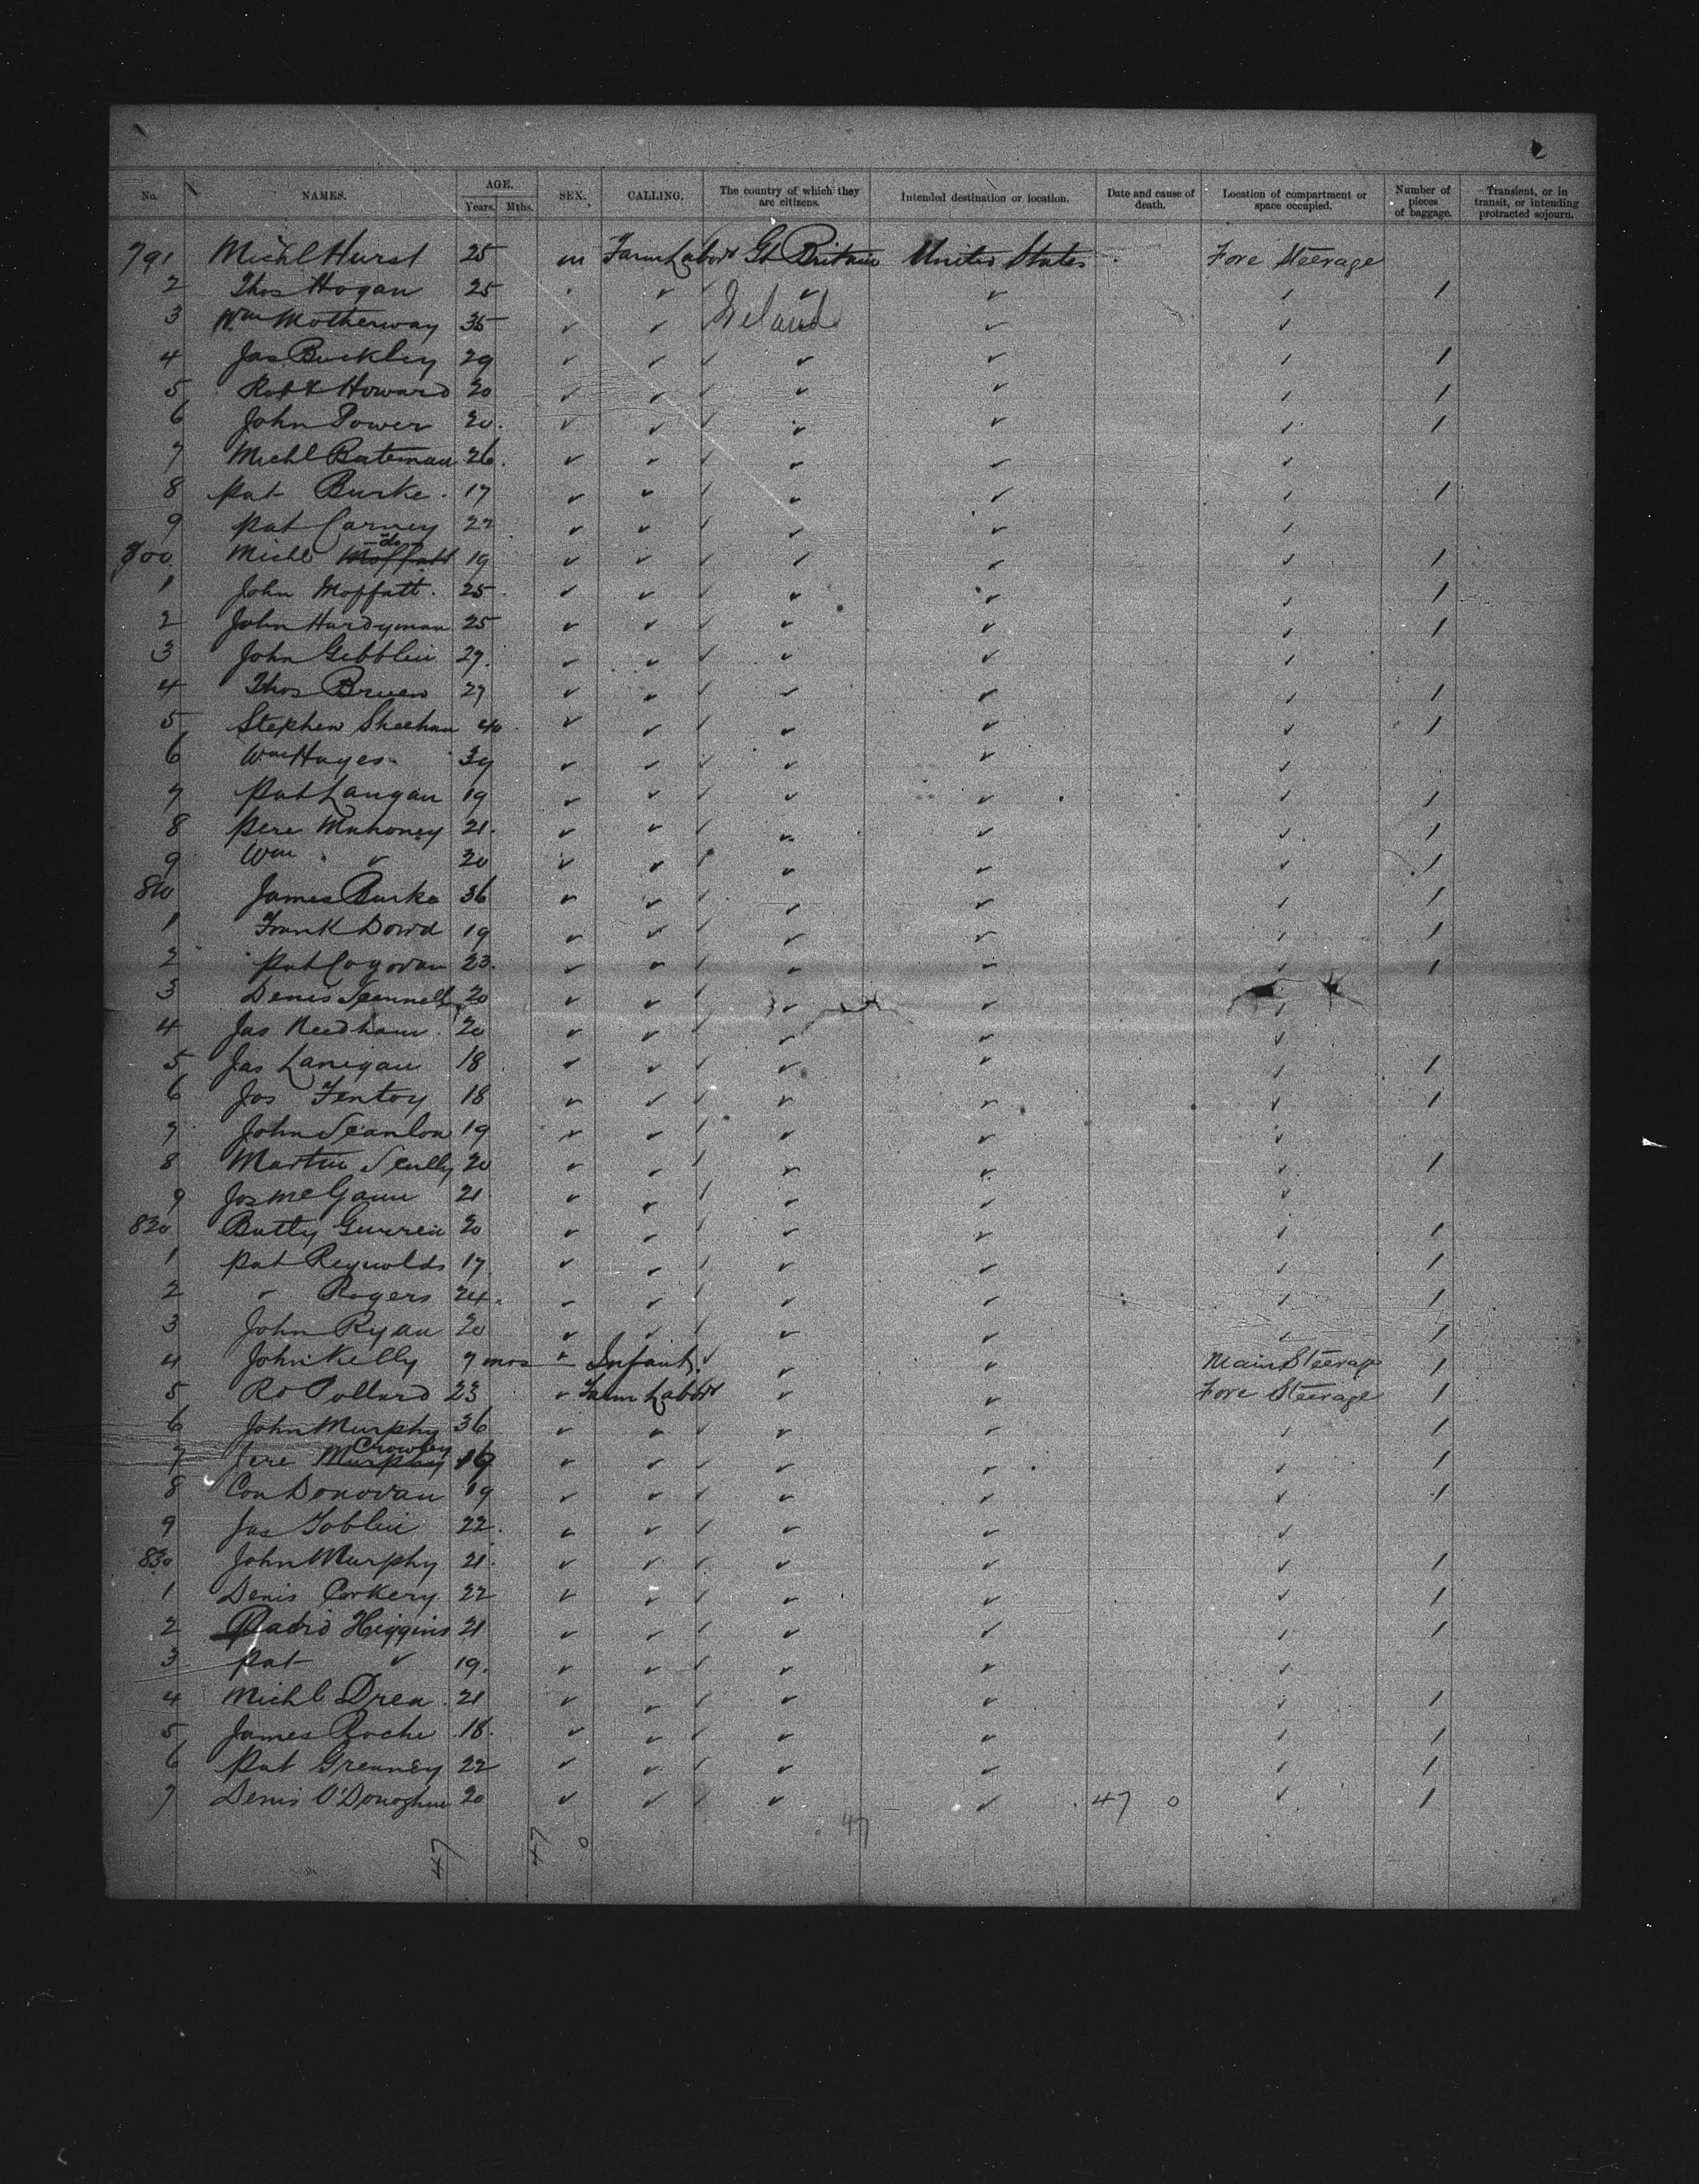 No. NAMES. AGE. Years. Mths. SEX. CALLING. The country of which they are citizens. Intended destination or location. Date and cause of death. Location of compartment or space occupied. Number of pieces of baggage. Transient, or in transit, or intending protracted sojourn.
791 Michl Hurst 25 m Farm Labor Gt Britain United States Fore Steerage
2 Thos Hogan 25 ✓ ✓ ✓ ✓ ✓ 1
3 Wm Motherway 35 ✓ ✓ Ireland ✓ ✓
4 Jas Buckley 29 ✓ ✓ ✓ ✓ ✓ ✓ 1
5 Robt Howard 20 ✓ ✓ ✓ ✓ ✓ ✓ 1
6 John Power 20 ✓ ✓ ✓ ✓ ✓ ✓ 1
7 Michl Bateman 26 ✓ ✓ ✓ ✓ ✓ ✓
8 Pat Burke 17 ✓ ✓ ✓ ✓ ✓ ✓ 1
9 Pat Carney 22 ✓ ✓ ✓ ✓ ✓ ✓
800 Michl Moffatt -do- 19 ✓ ✓ ✓ ✓ ✓ ✓ 1
1 John Moffatt 25 ✓ ✓ ✓ ✓ ✓ ✓ 1
2 John Hardyman 25 ✓ ✓ ✓ ✓ ✓ ✓ 1
3 John Gibblin 27 ✓ ✓ ✓ ✓ ✓ ✓
4 Thos Bruen 27 ✓ ✓ ✓ ✓ ✓ ✓ 1
5 Stephen Sheehan 40 ✓ ✓ ✓ ✓ ✓ ✓ 1
6 Wm Hayes 39 ✓ ✓ ✓ ✓ ✓ ✓
7 Pat Langan 19 ✓ ✓ ✓ ✓ ✓ ✓ 1
8 Jere Mahoney 21 ✓ ✓ ✓ ✓ ✓ ✓ 1
9 Wm ✓ 20 ✓ ✓ ✓ ✓ ✓ ✓ 1
810 James Burke 36 ✓ ✓ ✓ ✓ ✓ ✓ 1
1 Frank Dowd 19 ✓ ✓ ✓ ✓ ✓ ✓ 1
2 Pat Cogovan 23 ✓ ✓ ✓ ✓ ✓ ✓ 1
3 Denis Scannell 20 ✓ ✓ ✓ ✓ ✓
4 Jas Needham 20 ✓ ✓ ✓ ✓ ✓ ✓
5 Jas Lanigan 18 ✓ ✓ ✓ ✓ ✓ ✓ 1
6 Jos Fentoy 18 ✓ ✓ ✓ ✓ ✓ ✓ 1
7 John Scanlon 19 ✓ ✓ ✓ ✓ ✓ ✓
8 Martin Scully 20 ✓ ✓ ✓ ✓ ✓ ✓ 1
9 Jos McGann 21 ✓ ✓ ✓ ✓ ✓ ✓
820 Batty Gurrein 20 ✓ ✓ ✓ ✓ ✓ ✓ 1
1 Pat Reynolds 17 ✓ ✓ ✓ ✓ ✓ ✓ 1
2 " Rogers 24 ✓ ✓ ✓ ✓ ✓ ✓ 1
3 John Ryan 20 ✓ ✓ ✓ ✓ ✓ ✓ 1
4 John Kelly 7 mos ✓ Infant ✓ ✓ ✓ Main Steerage 1
5 Rd Pollard 23 ✓ Farm Labor ✓ ✓ Fore Steerage 1
6 John Murphy 36 ✓ ✓ ✓ ✓ ✓ ✓ 1
7 Jere Murphy Crowley 19 ✓ ✓ ✓ ✓ ✓ ✓ 1
8 Con Donovan 19 ✓ ✓ ✓ ✓ ✓ ✓ 1
9 Jas Toblin 22 ✓ ✓ ✓ ✓ ✓ ✓
830 John Murphy 21 ✓ ✓ ✓ ✓ ✓ ✓ 1
1 Denis Corkery 22 ✓ ✓ ✓ ✓ ✓ ✓ 1
2 Higgins 21 ✓ ✓ ✓ ✓ ✓ ✓ 1
3 Pat ✓ 19 ✓ ✓ ✓ ✓ ✓ ✓
4 Michl Drea 21 ✓ ✓ ✓ ✓ ✓ ✓ 1
5 James Roche 18 ✓ ✓ ✓ ✓ ✓ ✓ 1
6 Pat Greaney 22 ✓ ✓ ✓ ✓ ✓ ✓ 1
7 Denis O'Donoghue 20 ✓ ✓ ✓ ✓ ✓ 47 0 ✓ 1
47 47 0 47